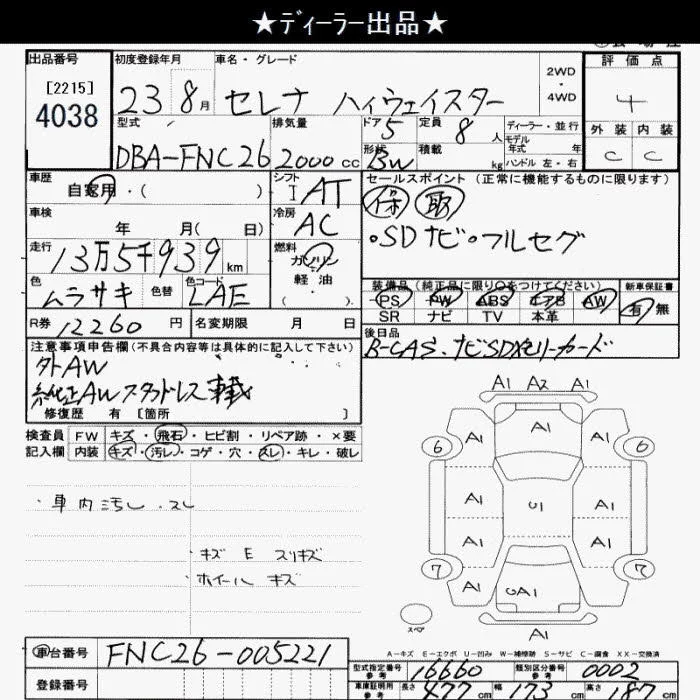 ★ディーラー出品★
出品番号 初度登録年月 車名・グレード 2WD・4WD 評価点
[2215]
4038
23 8月 セレナ ハイウェイスター 4
型式 排気量 ドア 5 定員 8人 ディーラー・並行 外装 内装
DBA-FNC26 2000cc 形状 BW 積載 kg モデル年式 年 ハンドル 左・右 C C
車歴 自家用・( ) シフト I AT セールスポイント (正常に機能するものに限ります)
車検 年 月( 日) 冷房 AC 保 取
・SDナビ・フルセグ
走行 13万5千939km 燃料 ガソリン 軽油 ( )
色 ムラサキ 色替 色コード LAE 装備品 (純正品に限り○をつけてください) 新車保証書
PS PW ABS エアB AW 有 無
SR ナビ TV 本革
R券 12260円 名変期限 月 日 後日品
B-CAS、ナビSDメモリーカード
注意事項申告欄(不具合内容等は具体的に記入して下さい)
外AW
純正AWスタッドレス車載
修復歴 有 [箇所 ]
検査員 FW キズ・飛石・ヒビ割・リペア跡・×要
記入欄 内装 キズ・汚レ・コゲ・穴・スレ・キレ・破レ
・車内汚レ.スレ
・キズ E スリキズ
・ホイール キズ
A1 A2 A1
A1 A1 A1
6 6
A1
A1 U1 A1
A1 A1
7 7
A1 UA1 A1
A1
スペア
A-キズ E-エクボ U-凹み W-補修跡 S-サビ C-腐食 XX-交換済
車台番号 FNC26-005221
登録番号
型式指定番号 参考 16660 類別区分番号 参考 0002
車庫証明用 参考 長さ 477cm 幅 173cm 高さ 187cm